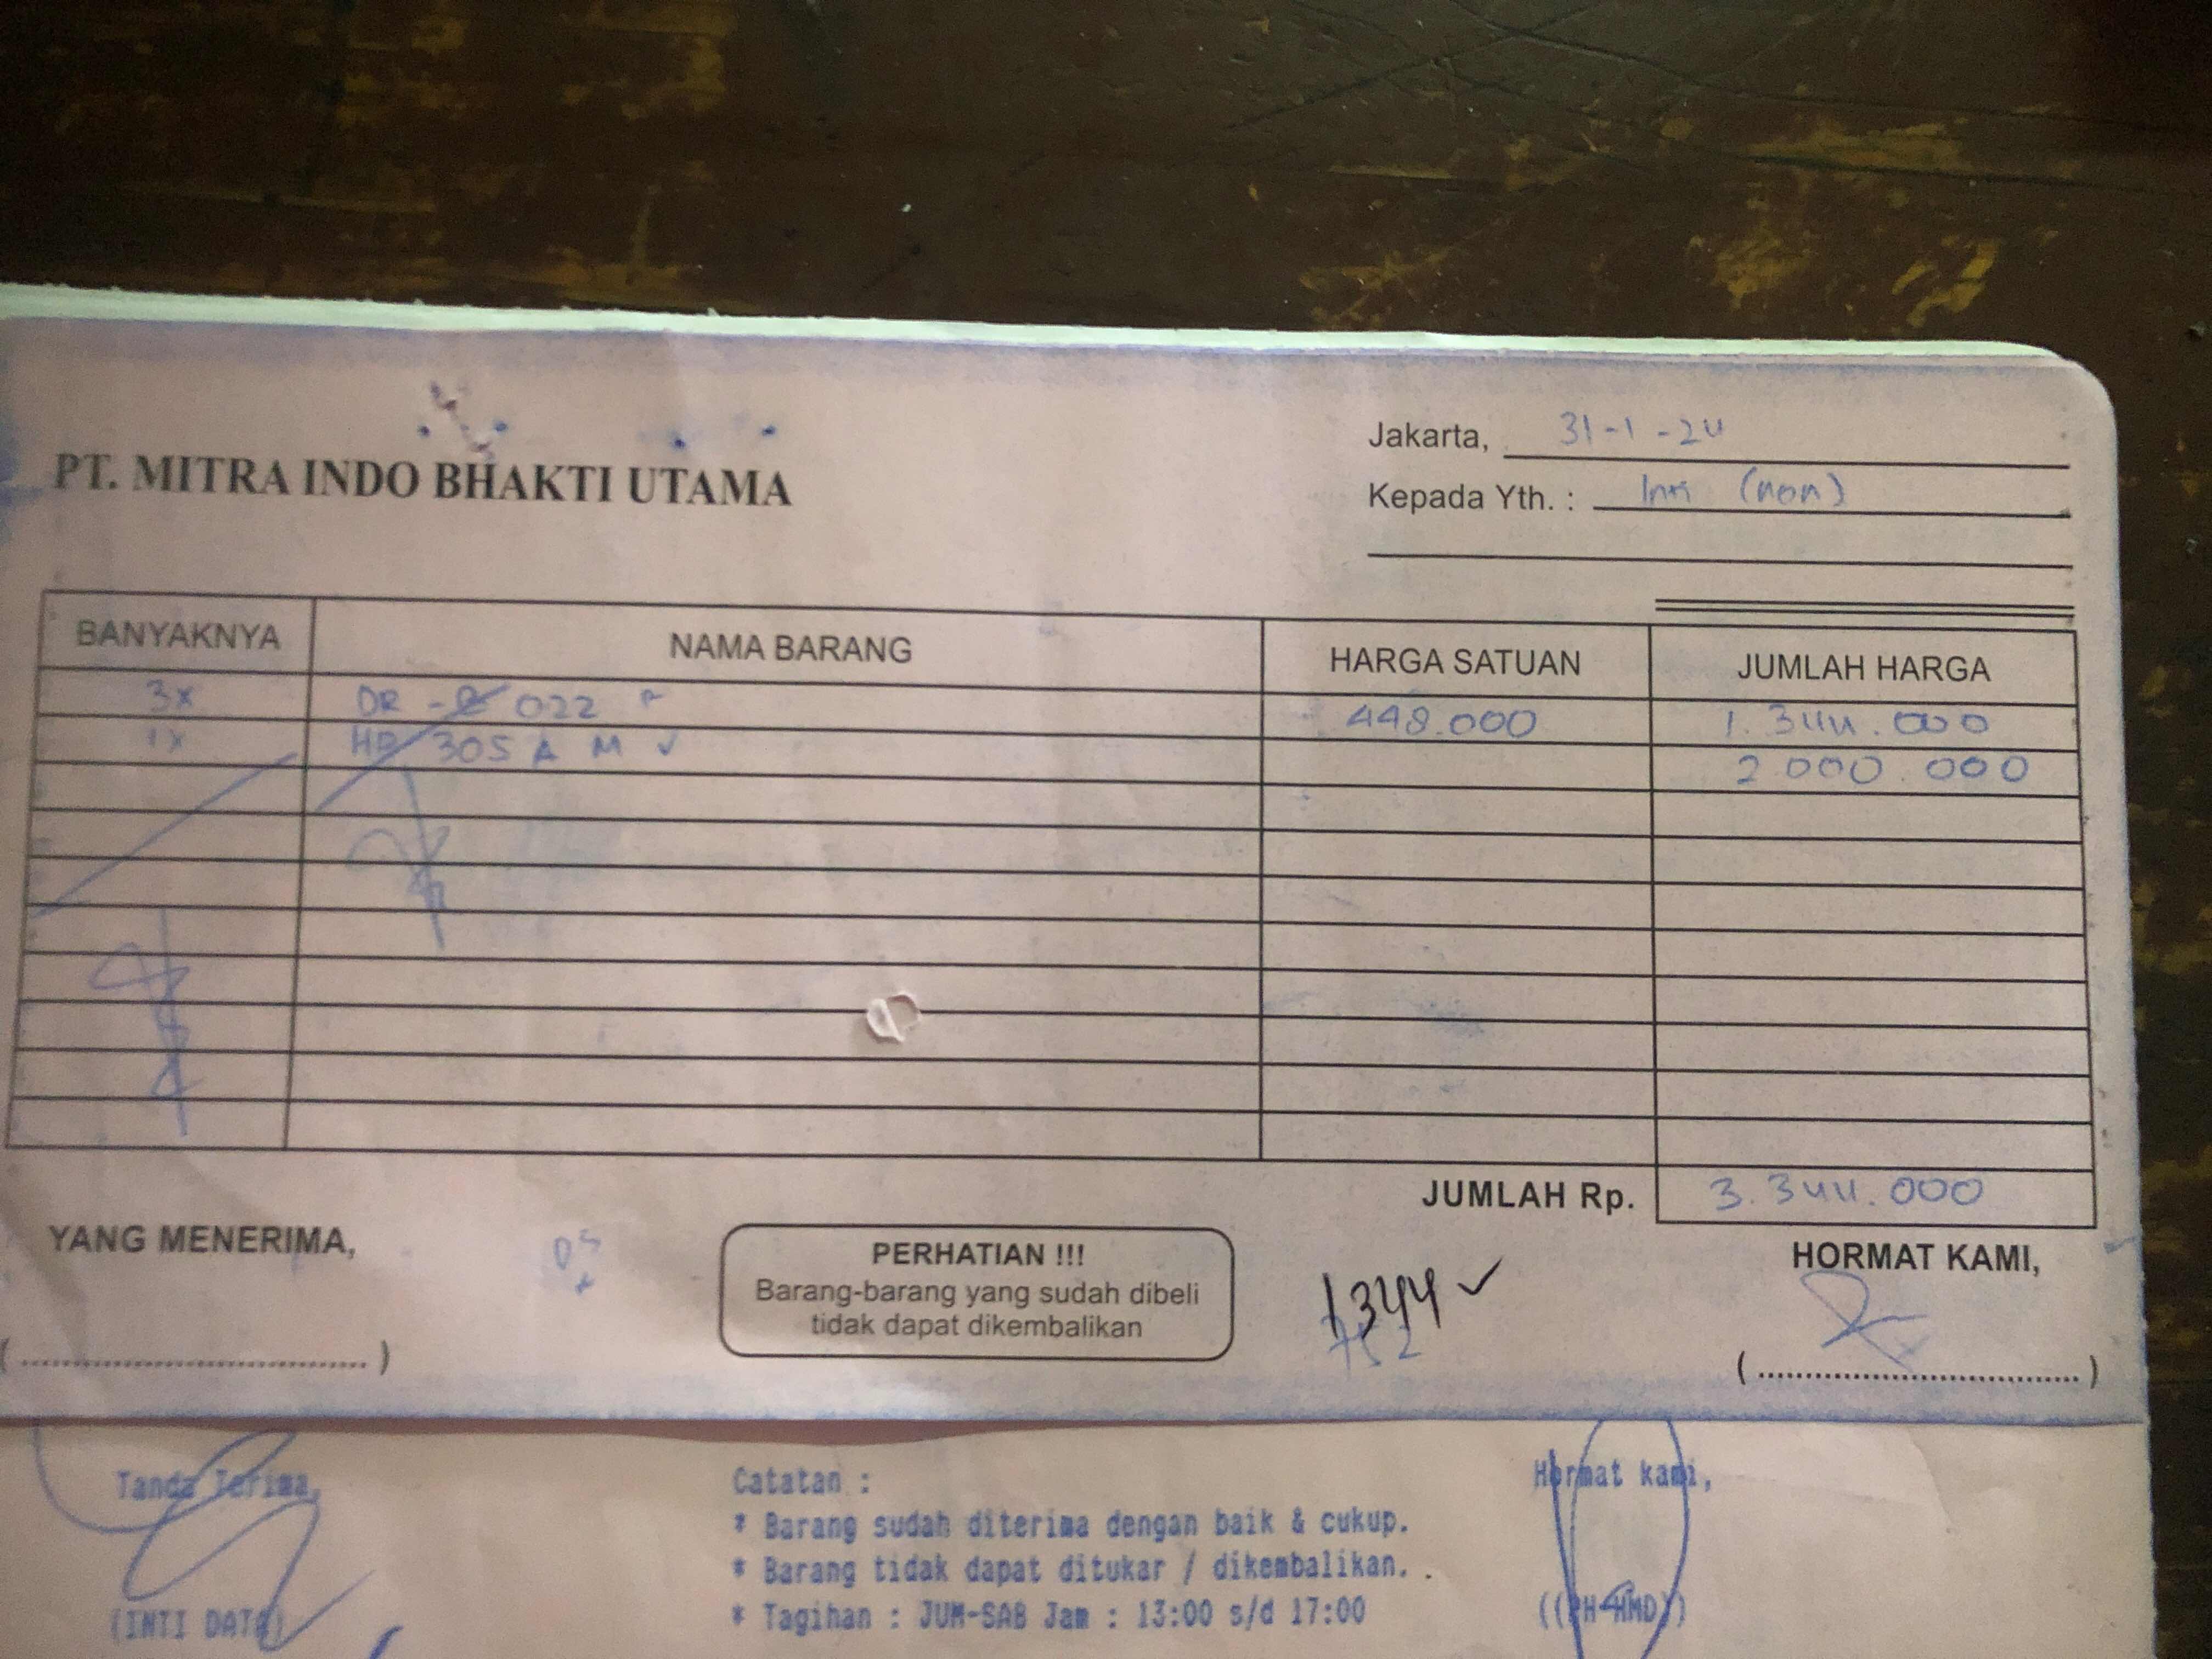 Jakarta, 31-1-24
PT. MITRA INDO BHAKTI UTAMA
Kepada Yth. : Inti (non)
BANYAKNYA NAMA BARANG HARGA SATUAN JUMLAH HARGA
3x DR - 022 448.000 1.344.000
1x HP 305 A M ✓ 2.000.000
JUMLAH Rp. 3.344.000
YANG MENERIMA,
PERHATIAN !!!
Barang-barang yang sudah dibeli
tidak dapat dikembalikan
1344 ✓
752
HORMAT KAMI,
(..............................)
(..............................)
Tanda Terima,
(INTI DATA)
Catatan :
* Barang sudah diterima dengan baik & cukup.
* Barang tidak dapat ditukar / dikembalikan. .
* Tagihan : JUM-SAB Jam : 13:00 s/d 17:00
Hormat kami,